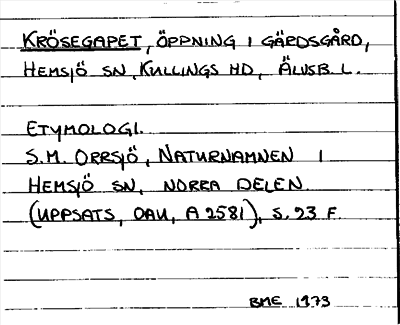 KRÖSEGAPET, ÖPPNING I GÄRDSGÅRD,
HEMSJÖ SN, KULLINGS HD, ÄLVSB. L.
ETYMOLOGI.
S.M. ORRSJÖ, NATURNAMNEN I
HEMSJÖ SN, NORRA DELEN.
(UPPSATS, OAU, A 2581), S. 23 F.
BME 1973